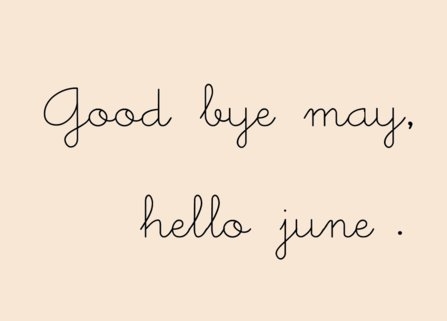 Good bye may,
hello june .